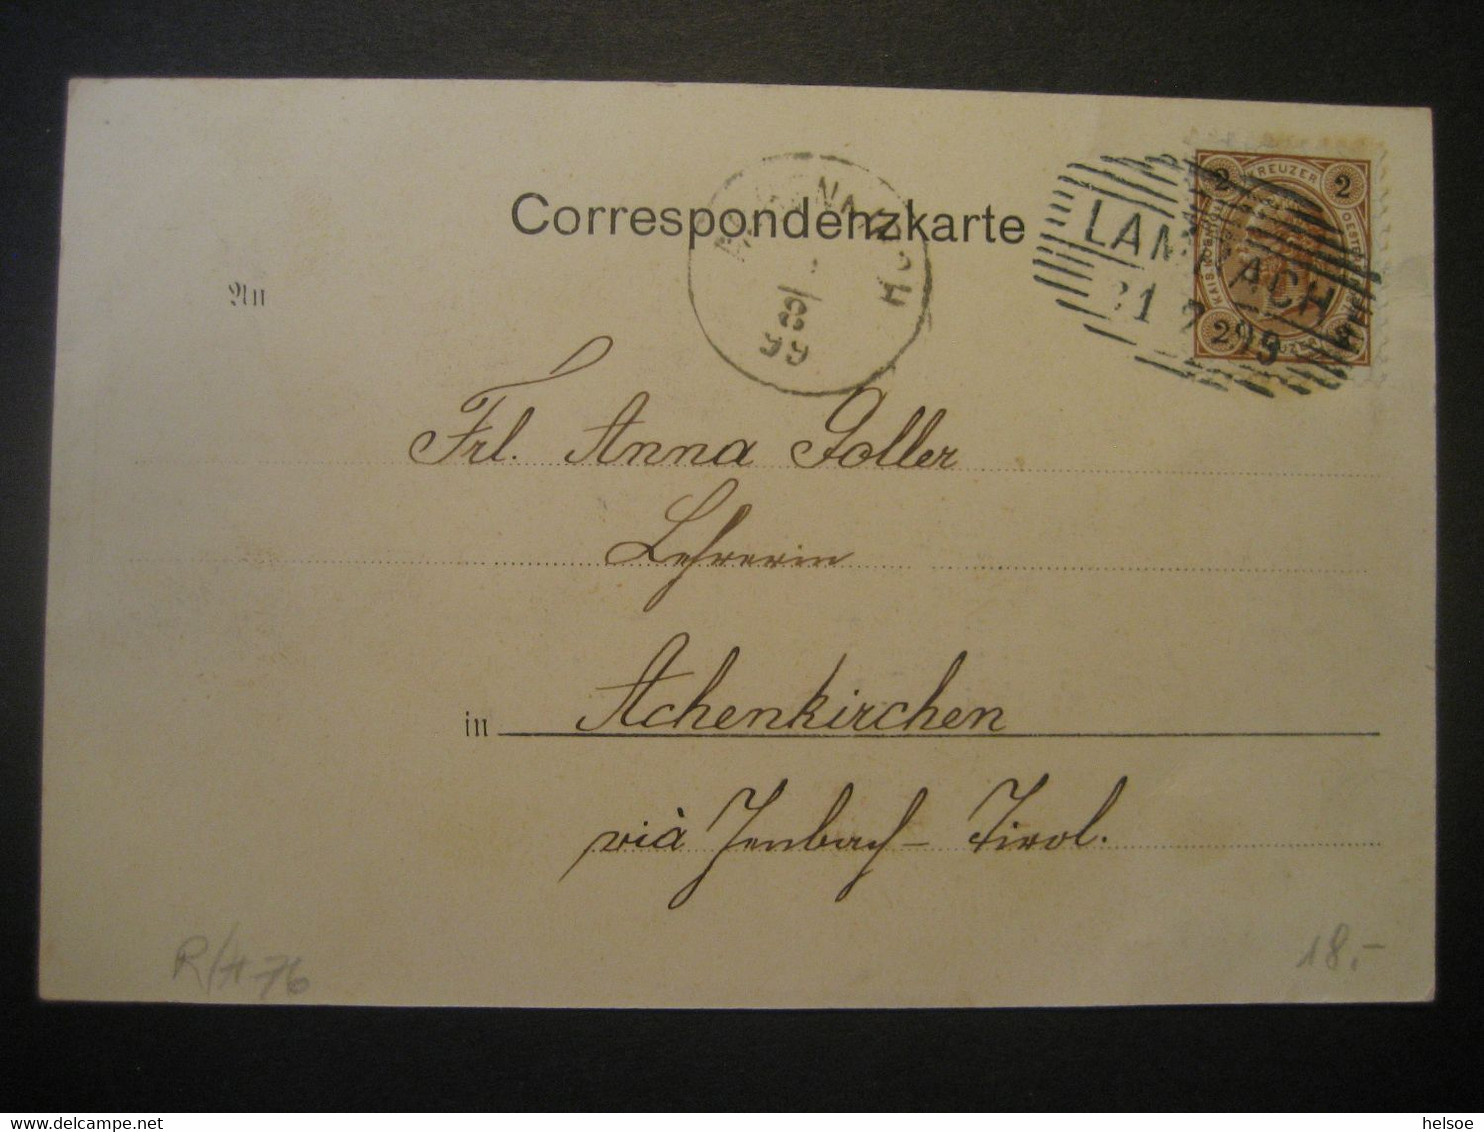 Correspondenzkarte
An
Frl. Anna Goller
Lehrerin
in Achenkirchen
vià Jenbach - Tirol.
LAMBACH
2 99
2 KREUZER 2
2
99
R/H 76
18.-
www.delcampe.net
helsoe